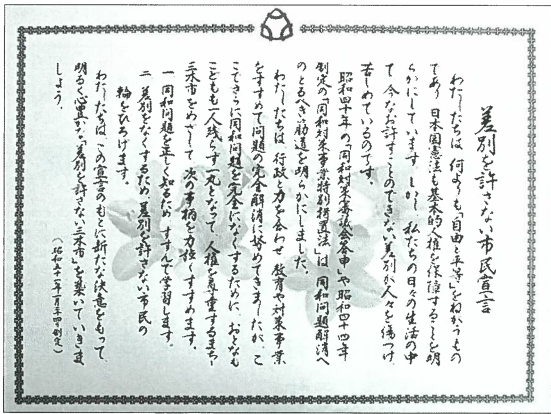 差別を許さない市民宣言
わたしたちは 何よりも「自由と平等」をねがうもの
であり 日本国憲法も基本的人権を保障することを明
らかにしています しかし 私たちの日々の生活の中
で 今なお許すことのできない差別が人々を傷つけ
苦しめているのです。
昭和四十年の「同和対策審議会答申」や昭和四十四年
制定の「同和対策事業特別措置法」は 同和問題解消へ
のとるべき筋道を明らかにしました。
わたしたちは 行政と力を合わせ 教育や対策事業
をすすめて問題の完全解消に努めてきましたが、こ
こでさらに同和問題を完全になくするために、おとなも
こどもも一人残らず一丸となって、人権を尊重するまち―
三木市をめざして 次の事柄を力強くすすめます。
一 同和問題を正しく知るため すすんで学習します。
二 差別をなくするため 差別を許さない市民の
輪をひろげます。
わたしたちは この宣言のもとに新たな決意をもって、
明るく心豊かな「差別を許さない三木市」を築いていきま
しょう。
（昭和五十一年一月 制定）